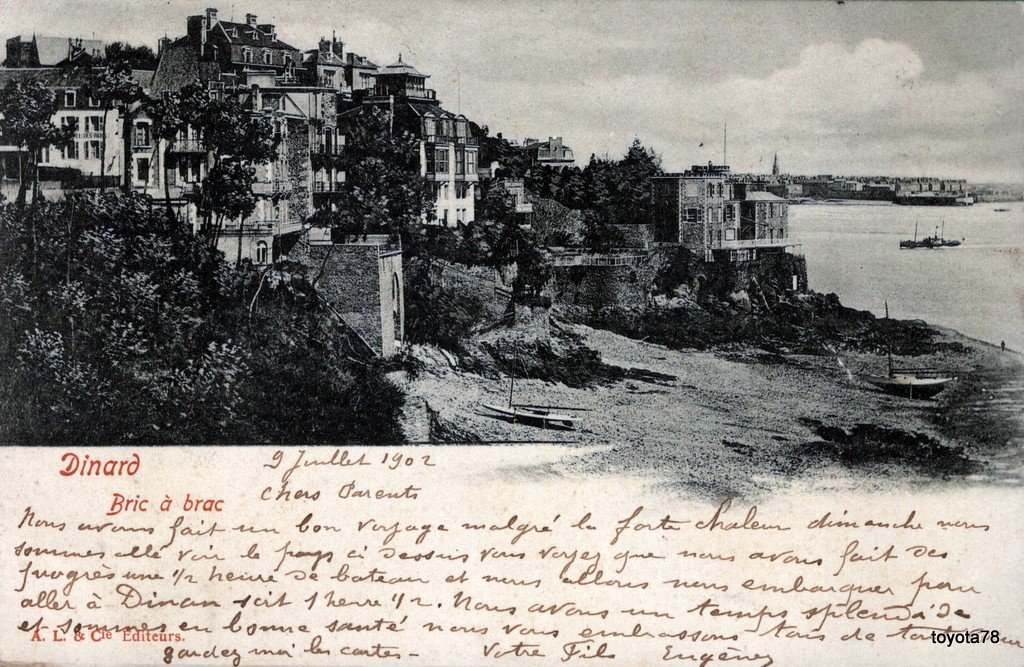 Dinard
Bric à brac
9 Juillet 1902
Chers Parents
Nous avons fait un bon voyage malgré la forte chaleur dimanche nous
sommes allé voir le pays ci dessus vous voyez que nous avons fait des
progrès une 1/2 heure de bateau et nous allons nous embarquer pour
aller à Dinan soit 1 heure 1/2. Nous avons un temps splendide
et sommes en bonne santé nous vous embrassons tous de tout
A. L. & Cie Editeurs.
gardez moi les cartes - Votre Fils
toyota78